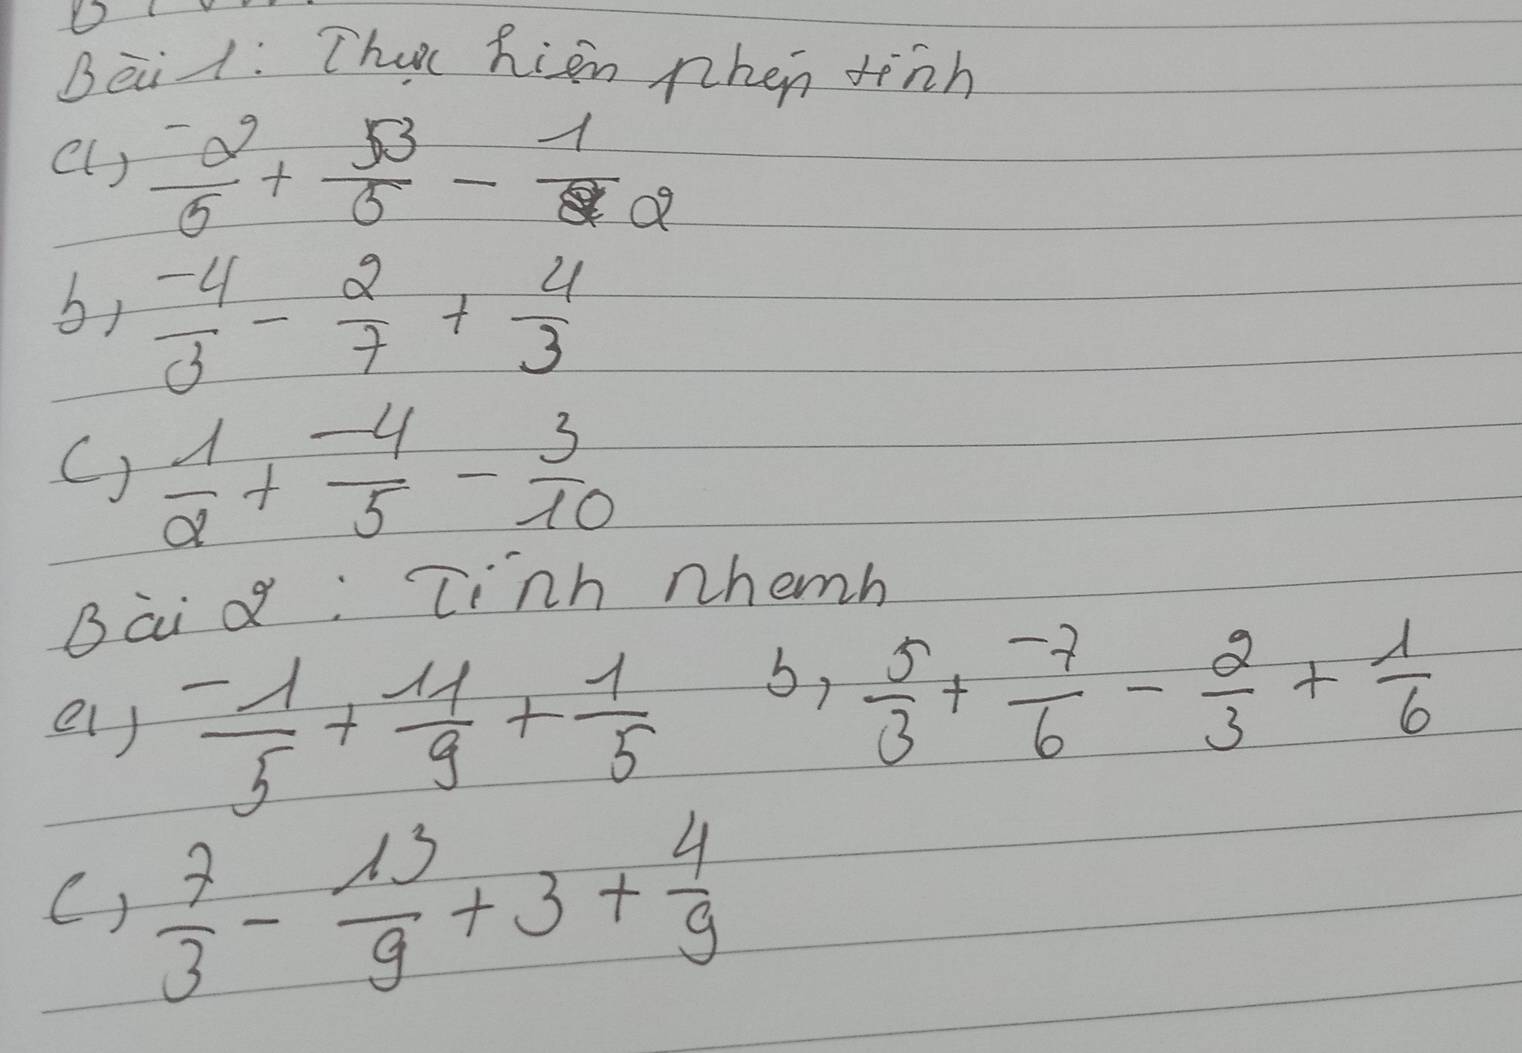 Bài 1: Thực hiện phép tính
a, -2/5 + 53/5 - 1/2
b, -4/3 - 2/7 + 4/3
c, 1/2 + -4/5 - 3/10
Bài 2: Tính nhanh
a, -1/5 + 11/9 + 1/5 b, 5/3 + -7/6 - 2/3 + 1/6
c, 7/3 - 13/9 + 3 + 4/9